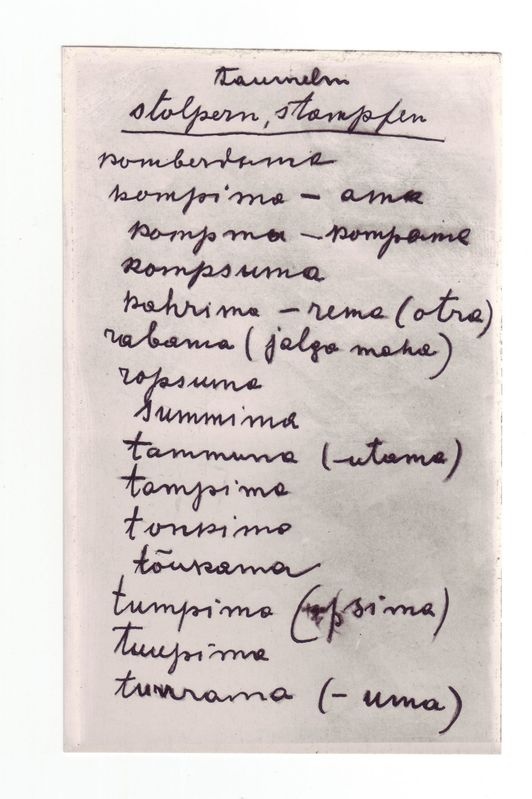 taumeln
stolpern, stampfen
komberdama
kompima – ama
kompma – kompama
kompsuma
kahrima – rema (otra)
rabama (jalga maha)
ropsuma
summima
tammuna (-utama)
tampima
tonkima
tõukama
tumpima (psima)
tuupima
tuurama (- uma)